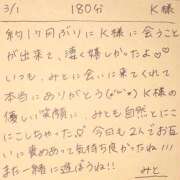 3/1 180分 K様
約1ヶ月ぶりにK様に会うこと
が出来て、凄く嬉しかったよ♡♡
いつも、みとに会いに来てくれて
本当にありがとう(´˘`)♥ K様の
優しい笑顔に、みとも自然とにこ
にこしちゃった♡ 今日も2人でお互
いに責めあって気持ち良かったね!!!
また一緒に遊ぼうね!! みと